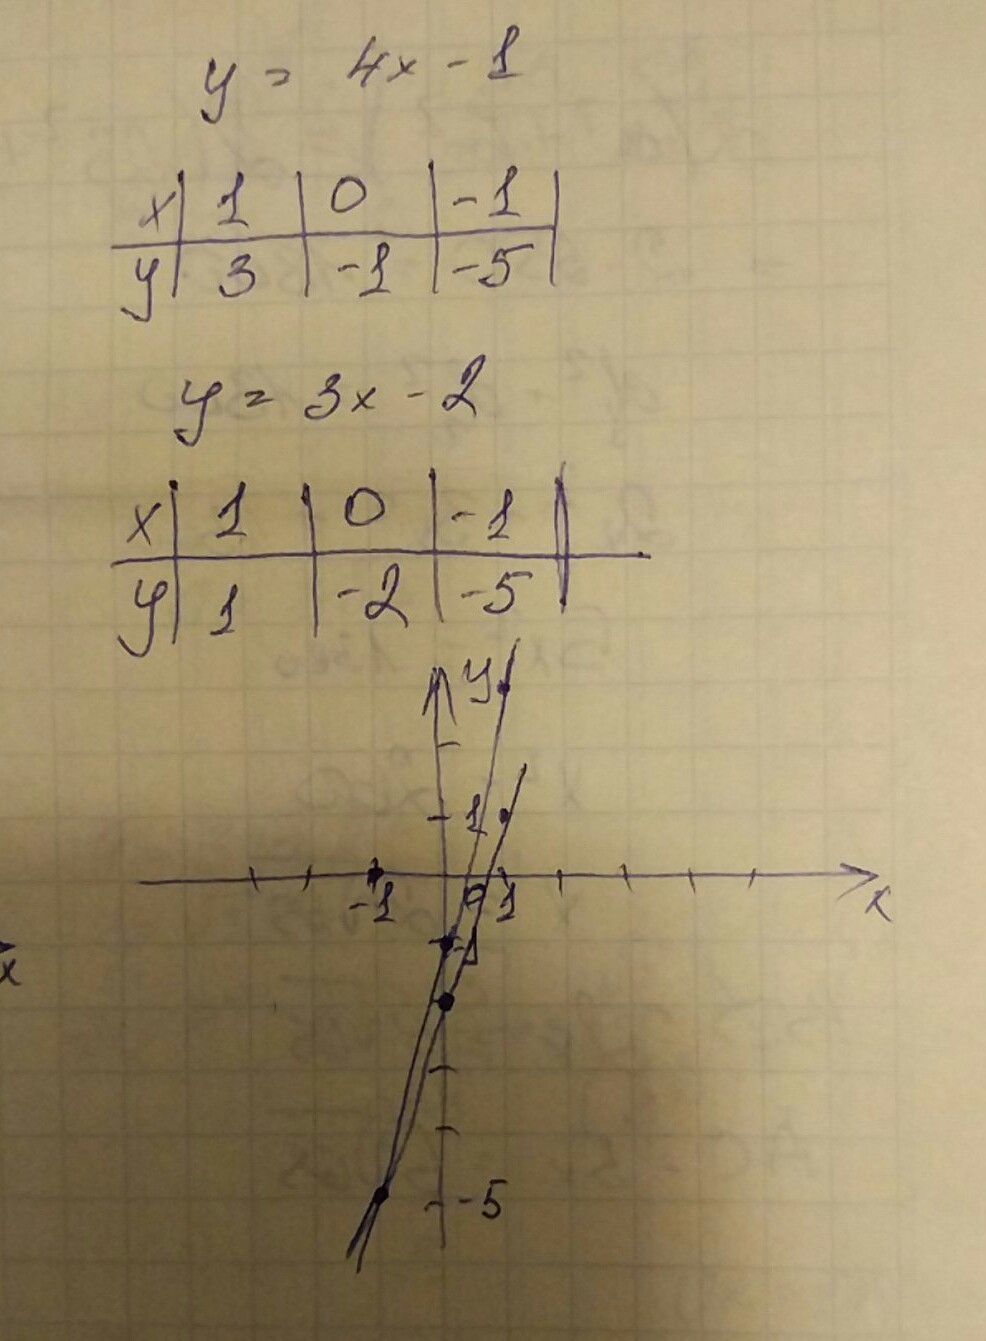 y = 4x - 1
x | 1 | 0 | -1 |
y | 3 | -1 | -5 |
y = 3x - 2
x | 1 | 0 | -1 |
y | 1 | -2 | -5 |
y
1
-1 0 1 x
-1
x
-5